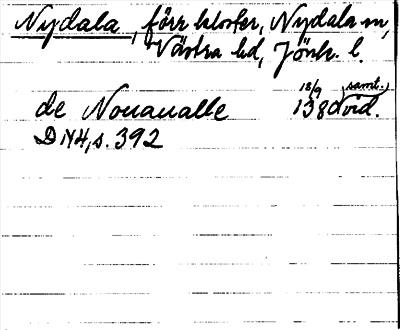 Nydala, förr kloster, Nydala sn,
Västra hd, Jönk. l.
18/9 (samt.)
de Nouaualle 1380 vid.
DN4, s. 392